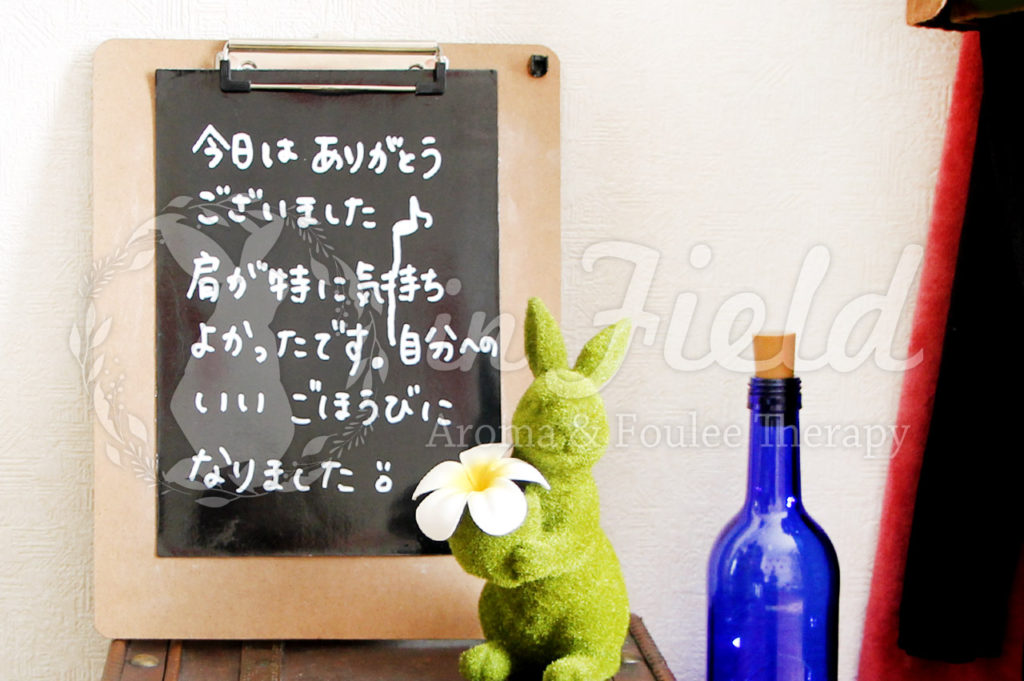 今日は ありがとう
ございました♪
肩が特に気持ち
よかったです。自分への
いい ごほうびに
なりました。
in Field
Aroma & Foulee Therapy